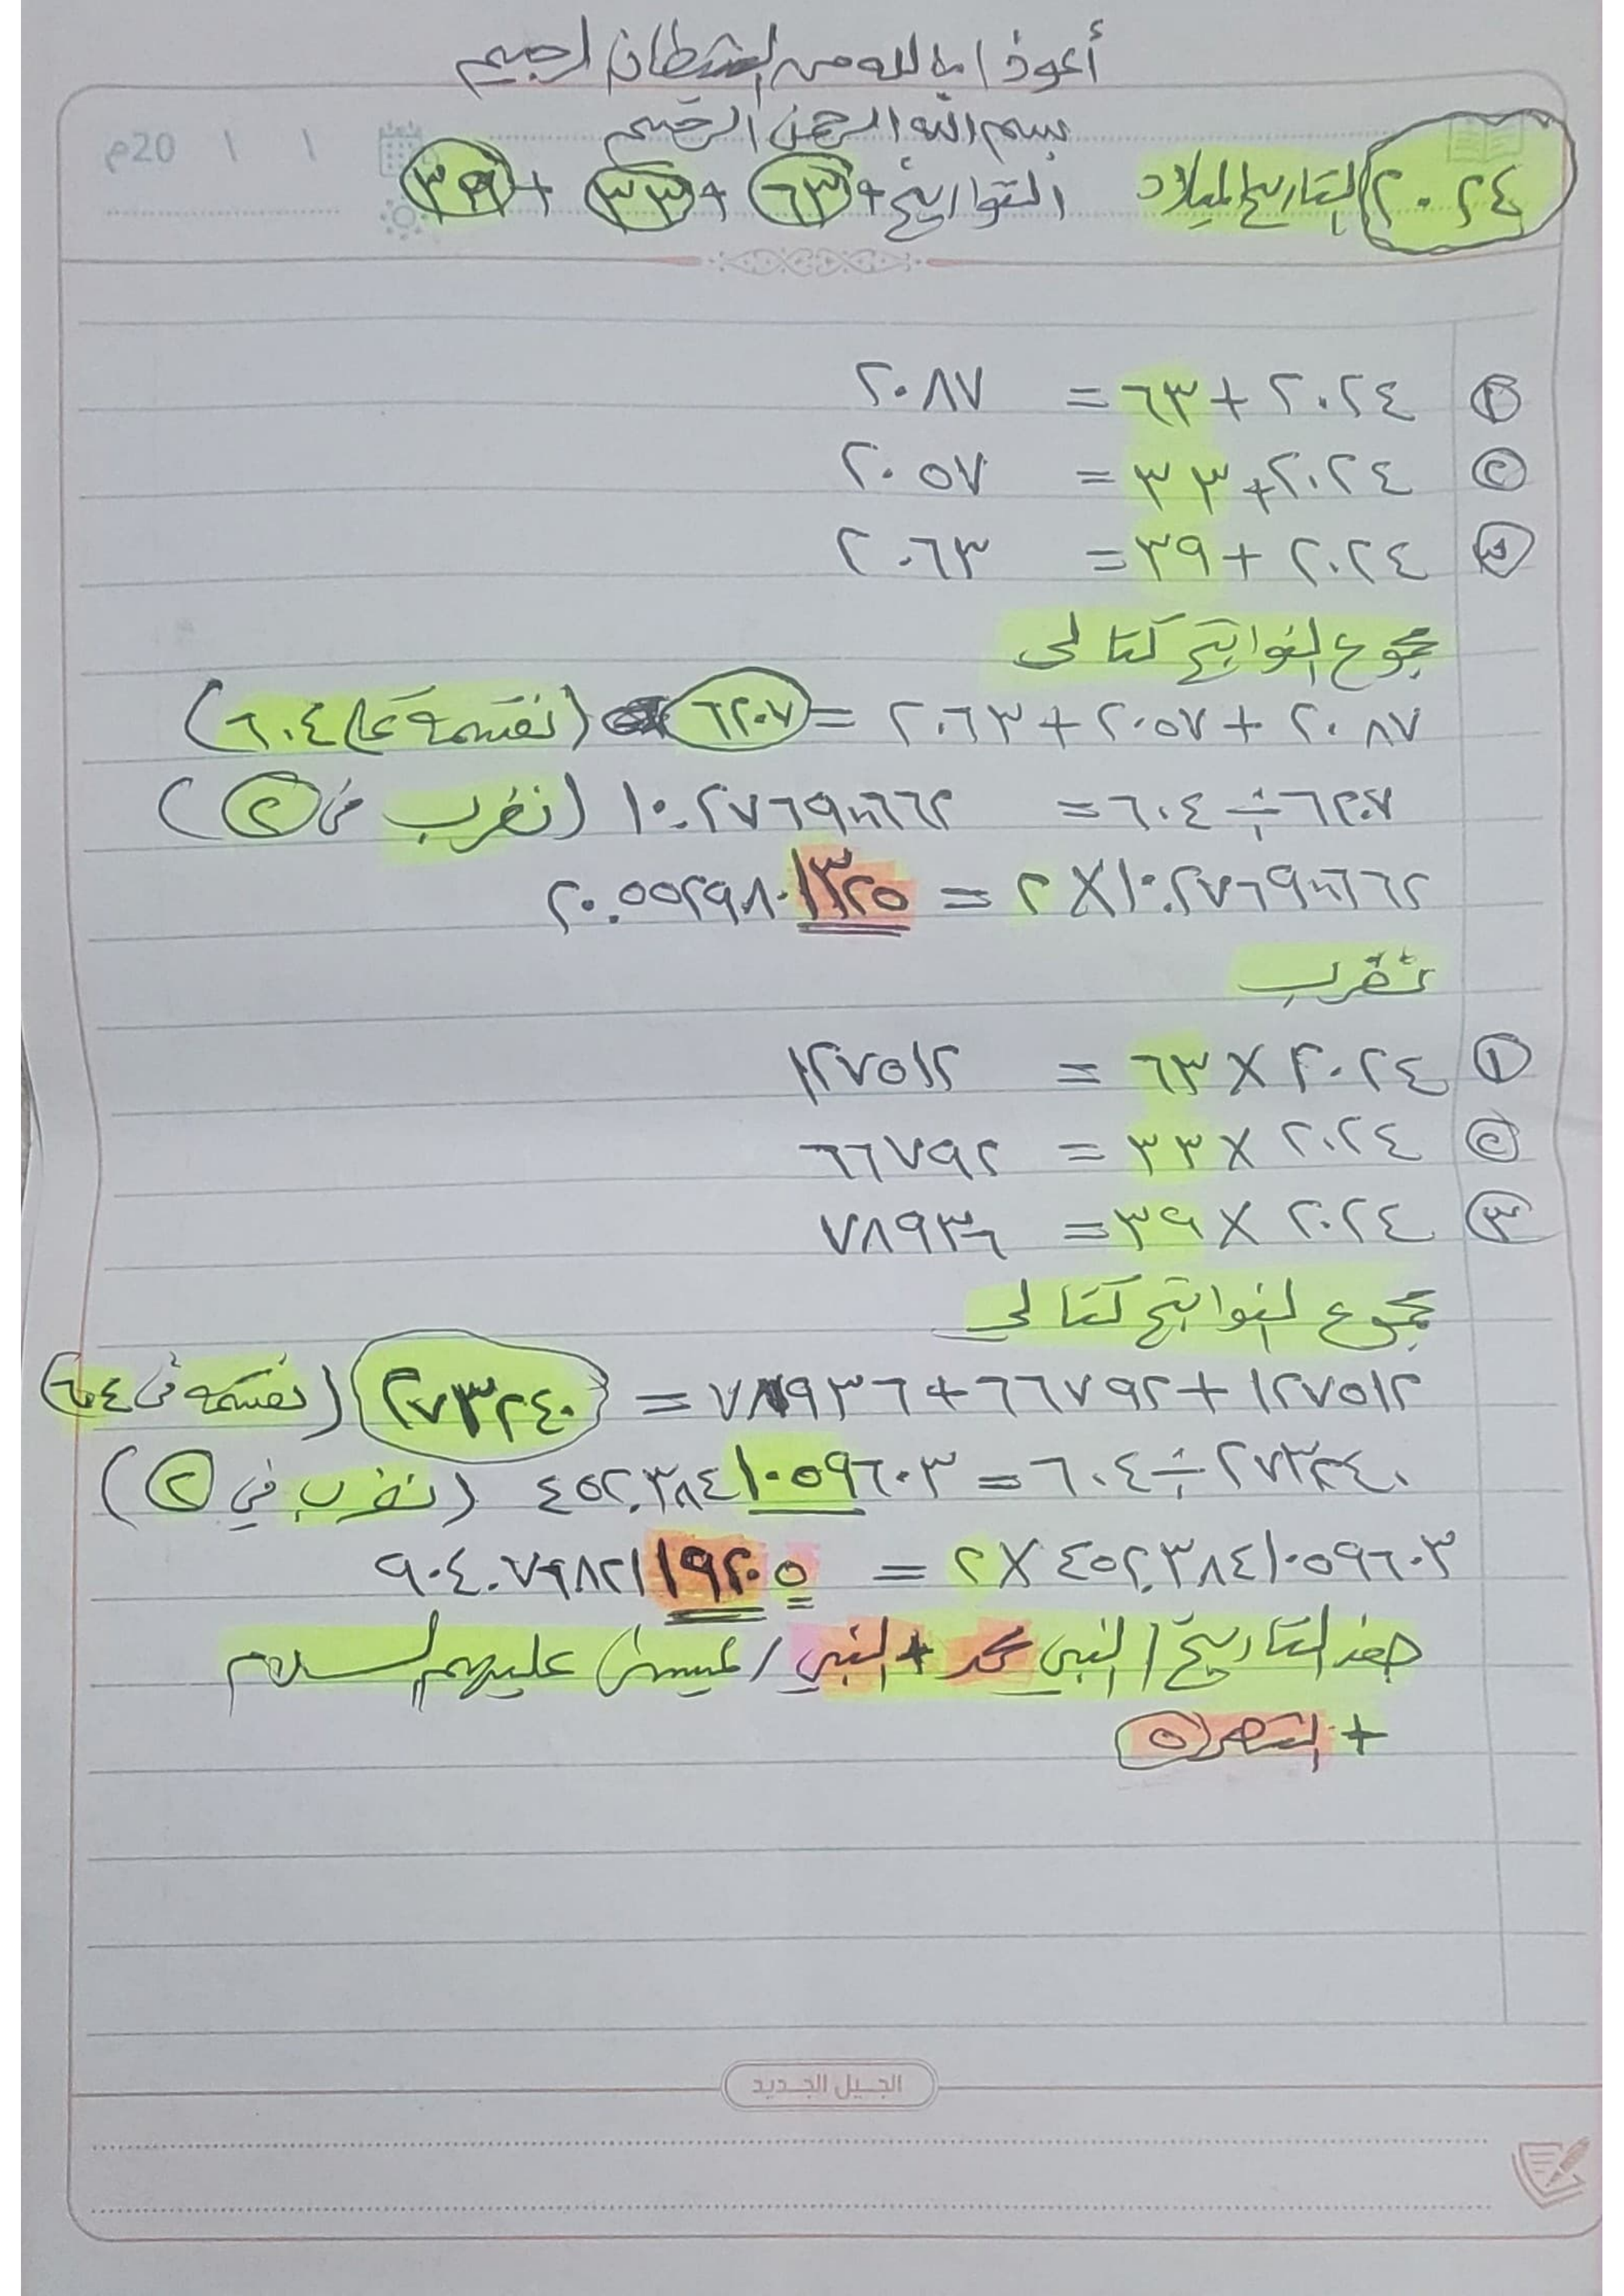 أعوذ بالله من الشيطان الرجيم
بسم الله الرحمن الرحيم
20م / /
٢٠٢٤ التاريخ الميلاد التواريخ + ٦٣ + ٣٣ + ٣٩
١ ٢٠٢٤ + ٦٣ = ٢٠٨٧
٢ ٢٠٢٤ + ٣٣ = ٢٠٥٧
٣ ٢٠٢٤ + ٣٩ = ٢٠٦٣
مجموع النواتج كتالي
٢٠٨٧ + ٢٠٥٧ + ٢٠٦٣ = ٦٢٠٧ (نقسمة على ٦٠٤)
٦٢٠٧ ÷ ٦٠٤ = ١٠.٢٧٦٤٩٠٠٦٦٢ (نضرب في ٢)
١٠.٢٧٦٤٩٠٠٦٦٢ × ٢ = ٢٠.٥٥٢٩٨٠١٣٢٥
نضرب
١ ٢٠٢٤ × ٦٣ = ١٢٧٥١٢
٢ ٢٠٢٤ × ٣٣ = ٦٦٧٩٢
٣ ٢٠٢٤ × ٣٩ = ٧٨٩٣٦
مجموع النواتج كتالي
١٢٧٥١٢ + ٦٦٧٩٢ + ٧٨٩٣٦ = ٢٧٣٢٤٠ (نقسمه في ٦٠٤
٢٧٣٢٤٠ ÷ ٦٠٤ = ٤٥٢.٣٨٤١٠٥٩٦٠٣ (نضرب في ٢)
٤٥٢.٣٨٤١٠٥٩٦٠٣ × ٢ = ٩٠٤.٧٦٨٢١١٩٢٠٥
التاريخ / النبي محمد + النبي / عيسى / عليهم السلام
+ الشهر ٥
الجيل الجديد